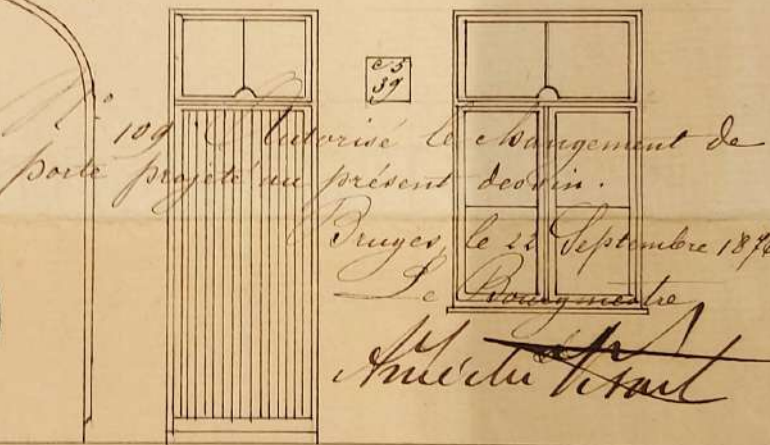 C 5
39
N° 109. Autorisé le changement de
porte projeté au présent dessin.
Bruges, le 22 Septembre 187
Le Bourgmestre
Amédée Visart